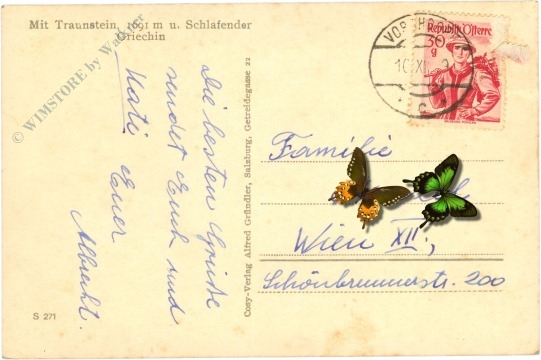 Mit Traunstein, 1691 m u. Schlafender
Griechin
© WIMSTORE by
Die besten Grüße
sendet Euch und
Kati Euer
Albrecht.
S 271
Cosy-Verlag Alfred Gründler, Salzburg, Getreidegasse 22
Republik Österr.
30 g
C
Familie
Wien XII.,
Schönbrunnerstr. 200